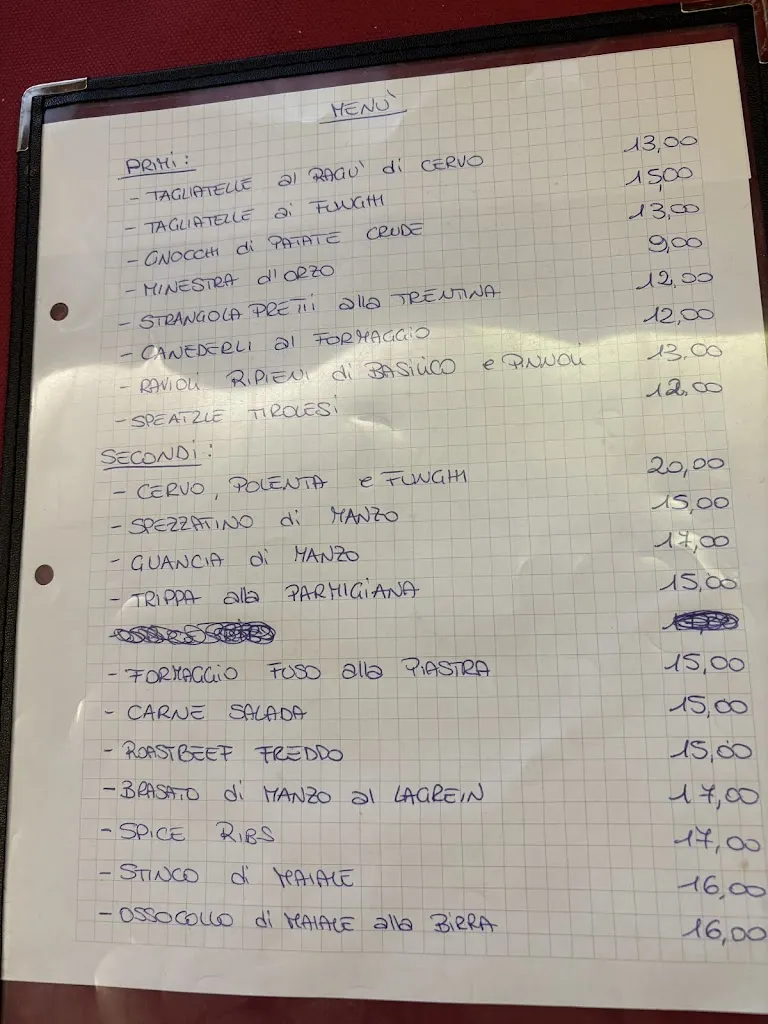 MENÙ
PRIMI:
- TAGLIATELLE al RAGU' di CERVO 13,00
- TAGLIATELLE ai FUNGHI 15,00
- GNOCCHI di PATATE CRUDE 13,00
- MINESTRA d'ORZO 9,00
- STRANGOLAPRETI alla TRENTINA 12,00
- CANEDERLI al FORMAGGIO 12,00
- RAVIOLI RIPIENI di BASILICO e PINNOLI 13,00
- SPEATZLE TIROLESI 12,00
SECONDI:
- CERVO, POLENTA e FUNGHI 20,00
- SPEZZATINO di MANZO 15,00
- GUANCIA di MANZO 17,00
- TRIPPA alla PARMIGIANA 15,00
- FORMAGGIO FUSO alla PIASTRA 15,00
- CARNE SALADA 15,00
- ROASTBEEF FREDDO 15,00
- BRASATO di MANZO al LAGREIN 17,00
- SPICE RIBS 17,00
- STINCO di MAIALE 16,00
- OSSOCOLLO di MAIALE alla BIRRA 16,00